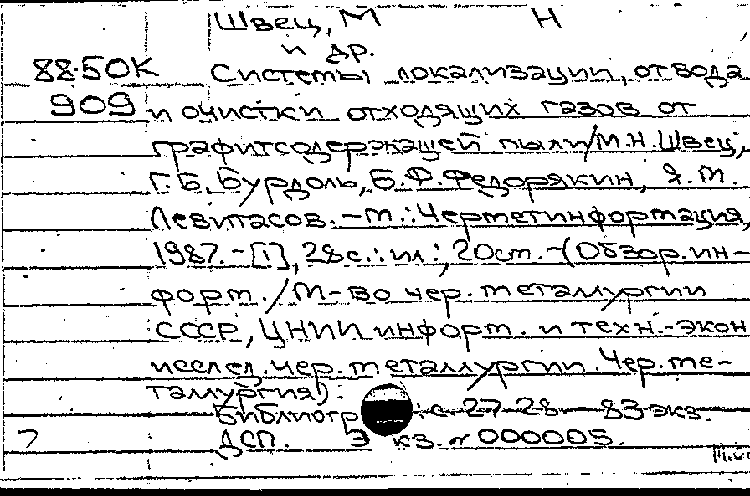 Швец, М Н
и др.
88-50К Системы локализации, отвода
909 и очистки отходящих газов от
графитсодержащей пыли/М.Н. Швец,
Г.Б. Бурдоль, Б.Ф. Федорякин, Я.М.
Левитасов. - М.: Черметинформация,
1987. - [1], 28 с.: ил.; 20 см. - (Обзор. ин-
форм./М-во чер. металлургии
СССР, ЦНИИ информ. и техн.-экон
исслед. чер. металлургии. Чер. ме-
таллургия).
Библиогр с 27-28 83 экз.
ДСП. Э кз. N 000005.